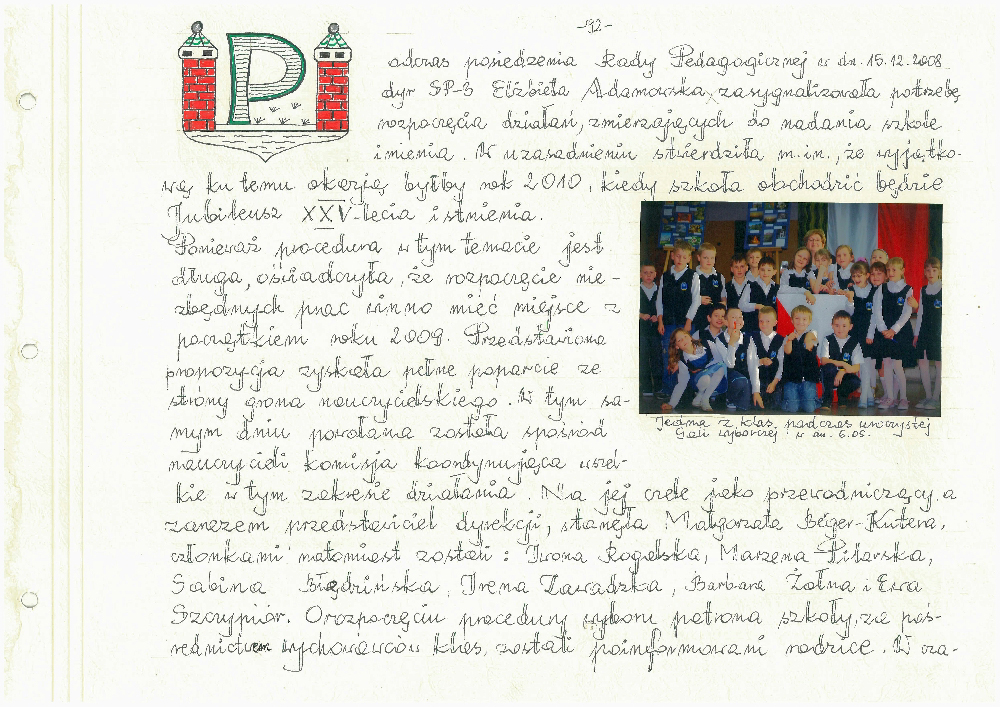 -92-
Podczas posiedzenia Rady Pedagogicznej w dn. 15.12.2008
dyr SP-3 Elżbieta Adamowska, zasygnalizowała potrzebę
rozpoczęcia działań, zmierzających do nadania szkole
imienia. W uzasadnieniu stwierdziła m.in., że wyjątko-
wą ku temu okazją byłby rok 2010, kiedy szkoła obchodzić będzie
Jubileusz XXV-lecia istnienia.
Ponieważ procedura w tym temacie jest
długa, oświadczyła, że rozpoczęcie nie-
zbędnych prac winno mieć miejsce z
początkiem roku 2009. Przedstawiona
propozycja zyskała pełne poparcie ze
strony grona nauczycielskiego. W tym sa-
mym dniu powołana została spośród
nauczycieli komisja koordynująca wszel-
kie w tym zakresie działania. Na jej czele jako przewodniczący, a
zarazem przedstawiciel dyrekcji, stanęła Małgorzata Beger-Kutera,
członkami natomiast zostali: Iwona Rogalska, Marzena Pilarska,
Sabina Błędzińska, Irena Zawadzka, Barbara Żołna i Ewa
Szczypiór. O rozpoczęciu procedury wyboru patrona szkoły, za poś-
rednictwem wychowawców klas, zostali poinformowani rodzice. W cza-
Jedna z klas podczas uroczystej
Gali wyborczej w dn. 6.05.